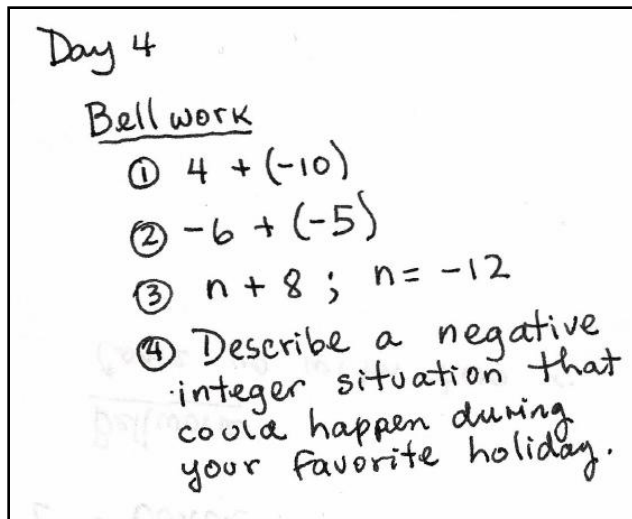 Day 4
Bellwork
① 4 + (-10)
② -6 + (-5)
③ n + 8 ; n = -12
④ Describe a negative
integer situation that
could happen during
your favorite holiday.